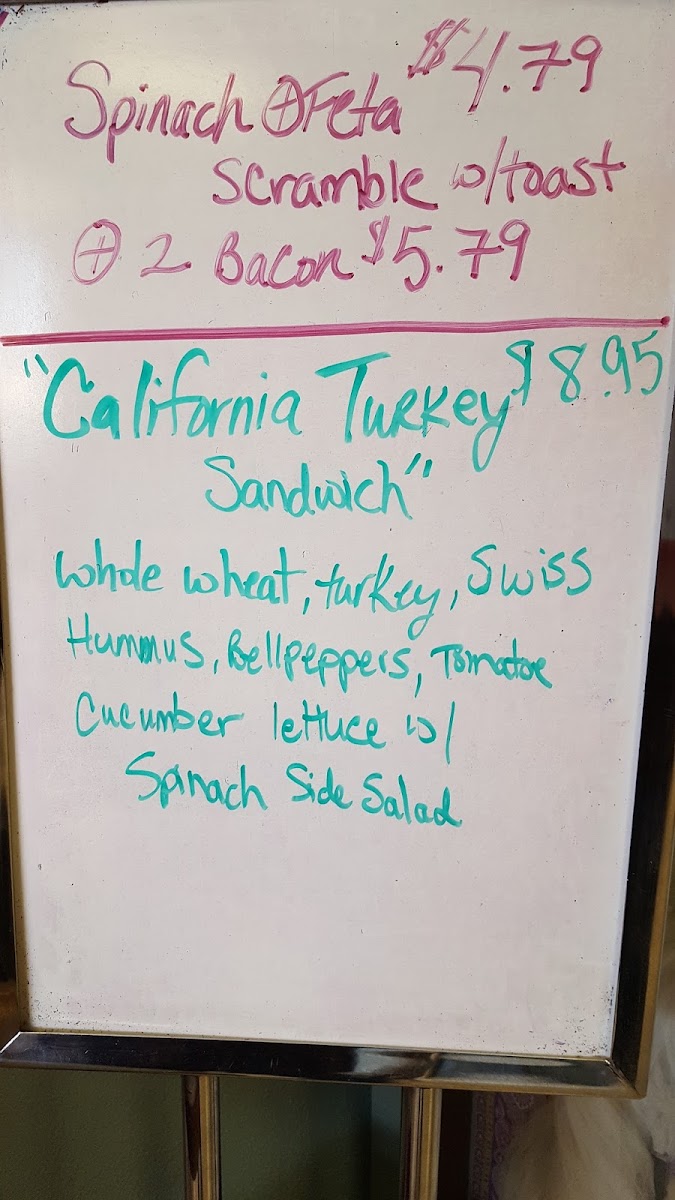 Spinach ⊕ Feta $4.79
Scramble w/toast
⊕ 2 Bacon $5.79
"California Turkey $8.95
Sandwich"
whole wheat, turkey, Swiss
Hummus, Bellpeppers, Tomatoe
Cucumber lettuce w/
Spinach Side Salad